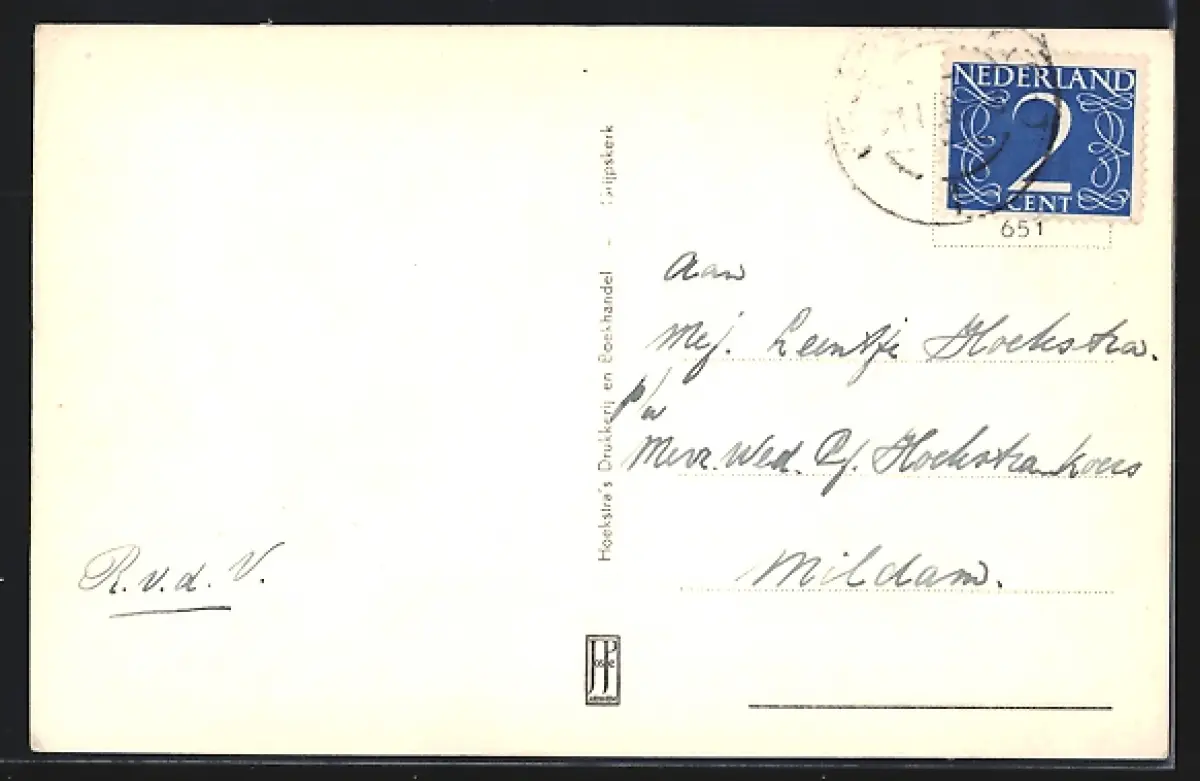 NEDERLAND
2
CENT
651
Aan
Mej. Leentje Hoekstra.
p/a
Mevr. Wed. Cj. Hoekstra-Koers
Mildam.
R. v. d. V.
Hoekstra's Drukkerij en Boekhandel - Grijpskerk
JosPé
ARNHEM